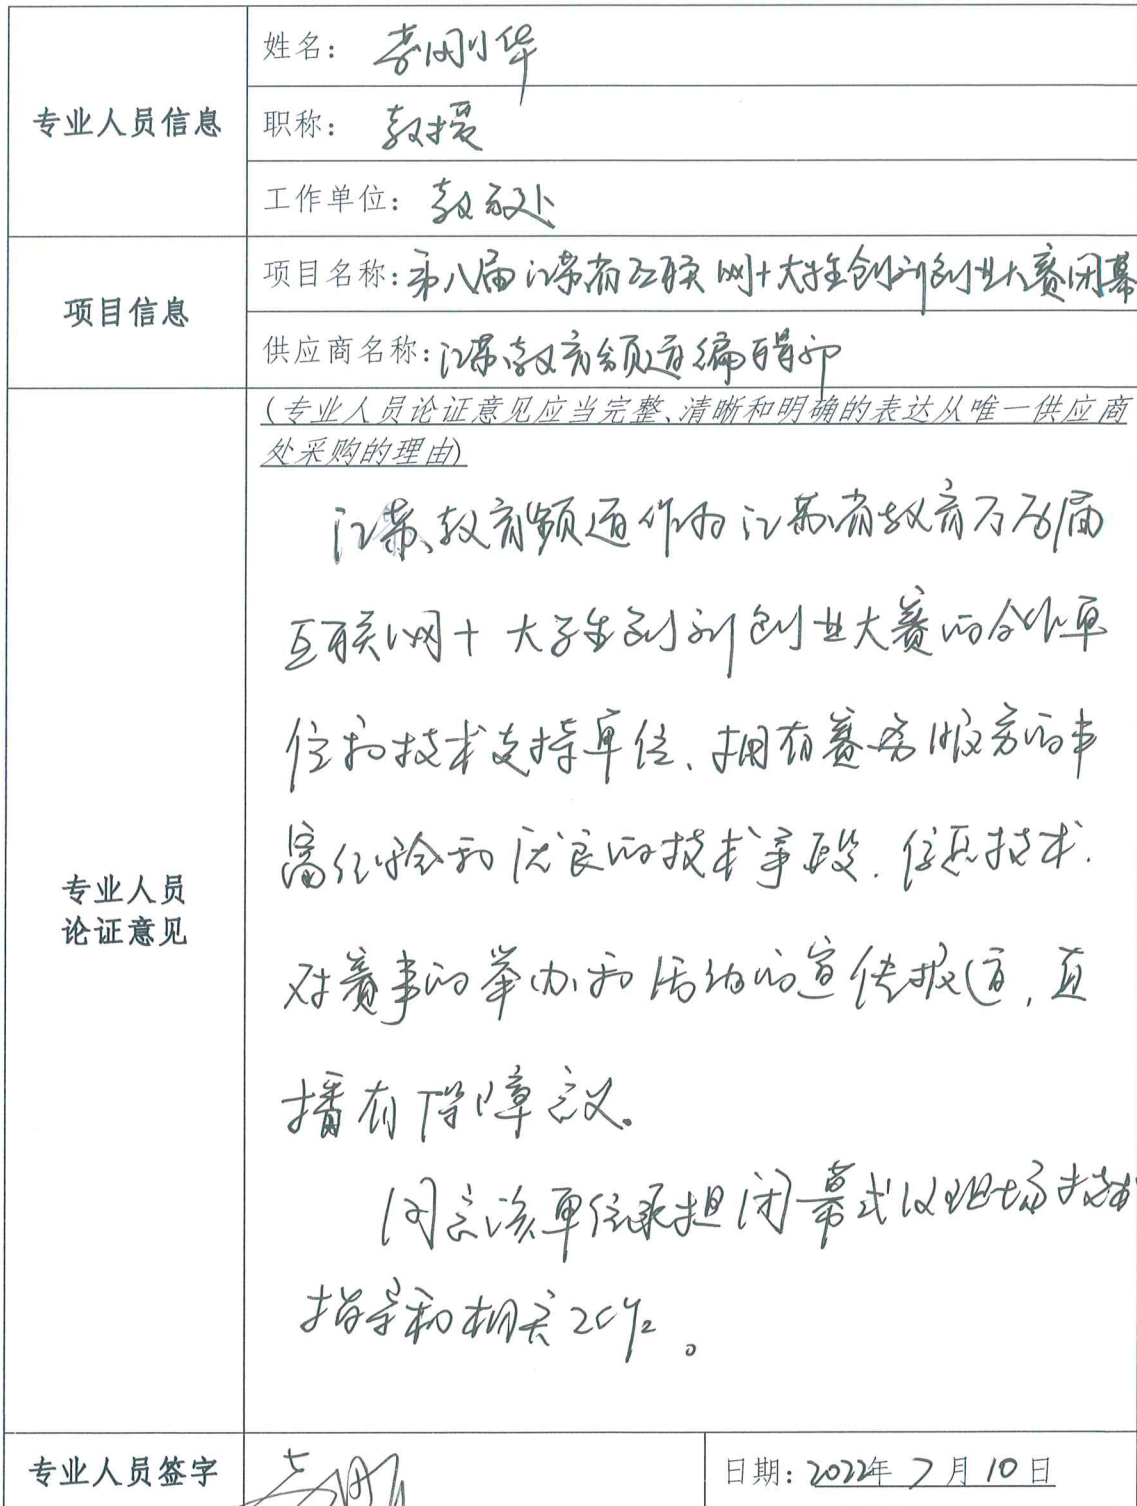 专业人员信息
姓名：李刚华
职称：教授
工作单位：教务处
项目信息
项目名称：第八届江苏省互联网十大学生创新创业大赛闭幕
供应商名称：江苏教育频道编辑部
专业人员
论证意见
(专业人员论证意见应当完整、清晰和明确的表达从唯一供应商
处采购的理由)
江苏教育频道作为江苏省教育厅历届
互联网十大学生创新创业大赛的合作单
位和技术支持单位、拥有赛务服务的丰
富经验和优良的技术手段．信息技术．
对赛事的举办和活动的宣传报道，直
播有保障意义。
同意该单位承担闭幕式仪现场技术
指导和相关工作。
专业人员签字
日期：2022年7月10日